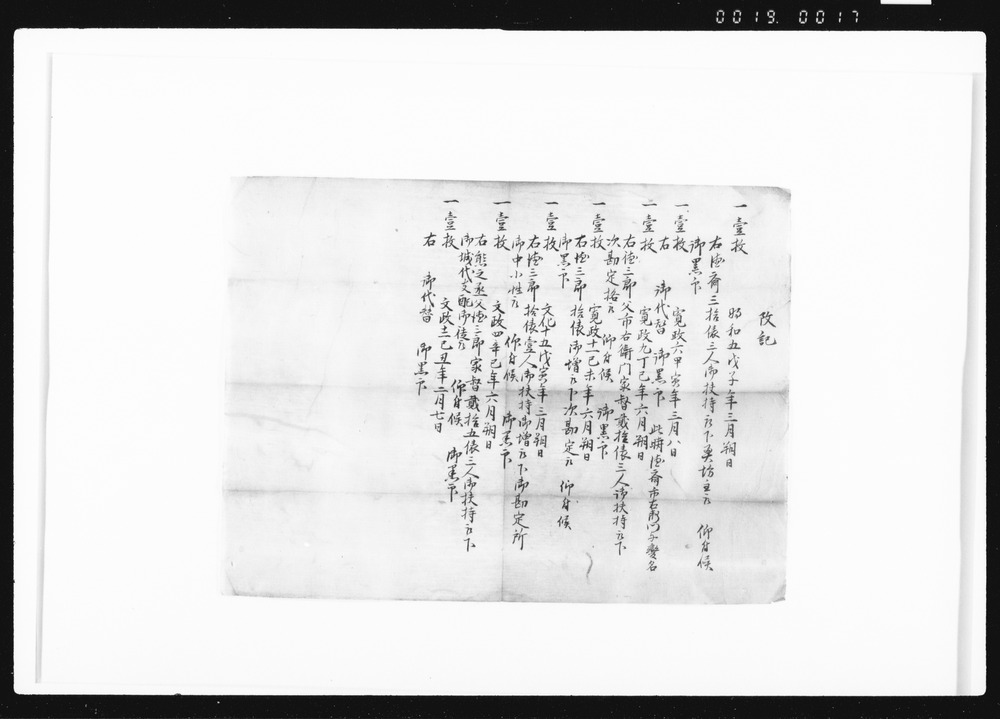 0019. 0017
改記
一壹枚 明和五戊子年三月朔日
右德齋三拾俵三人御扶持被下奥坊主被 仰付候
御黒印
一壹枚 寛政六甲寅年三月八日
右 御代替 御黒印 此時德齋市右衛門与變名
一壹枚 寛政九丁巳年六月朔日
右德三郎父市右衛門家督貳拾俵三人御扶持被下
次勘定格被 仰付候 御黒印
一壹枚 寛政十一己未年六月朔日
右德三郎拾俵御増被下次勘定被 仰付候
御黒印
一壹枚 文化十五戊寅年三月朔日
右德三郎拾俵壹人御扶持御増被下御勘定所
御中小性被 仰付候 御黒印
一壹枚 文政四辛巳年六月朔日
右熊之丞父德三郎家督貳拾五俵三人御扶持被下
御城代支配御徒被 仰付候 御黒印
一壹枚 文政十二己丑年二月七日
右 御代替 御黒印